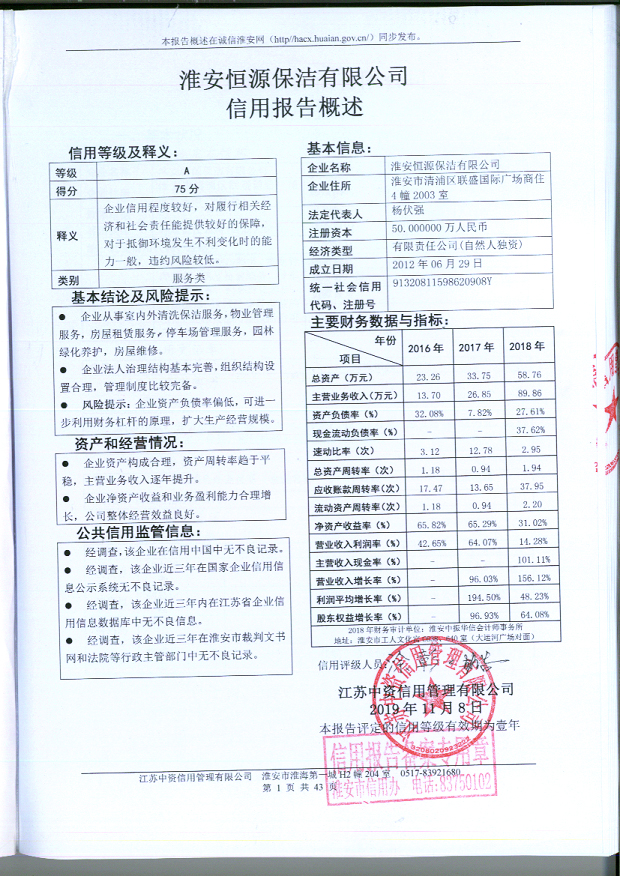 本报告概述在诚信淮安网（http//hacx.huaian.gov.cn/）同步发布。
淮安恒源保洁有限公司
信用报告概述
信用等级及释义：
等级 A
得分 75 分
释义 企业信用程度较好，对履行相关经
济和社会责任能提供较好的保障，
对于抵御环境发生不利变化时的能
力一般，违约风险较低。
类别 服务类
基本结论及风险提示：
● 企业从事室内外清洗保洁服务，物业管理
服务，房屋租赁服务，停车场管理服务，园林
绿化养护，房屋维修。
● 企业法人治理结构基本完善，组织结构设
置合理，管理制度比较完备。
● 风险提示：企业资产负债率偏低，可进一
步利用财务杠杆的原理，扩大生产经营规模。
资产和经营情况：
● 企业资产构成合理，资产周转率趋于平
稳，主营业务收入逐年提升。
● 企业净资产收益和业务盈利能力合理增
长，公司整体经营效益良好。
公共信用监管信息：
● 经调查，该企业在信用中国中无不良记录。
● 经调查，该企业近三年在国家企业信用信
息公示系统无不良记录。
● 经调查，该企业近三年内在江苏省企业信
用信息数据库中无不良信息。
● 经调查，该企业近三年在淮安市裁判文书
网和法院等行政主管部门中无不良记录。
基本信息：
企业名称 淮安恒源保洁有限公司
企业住所 淮安市清浦区联盛国际广场商住
4 幢 2003 室
法定代表人 杨伏强
注册资本 50.000000 万人民币
经济类型 有限责任公司(自然人独资)
成立日期 2012 年 06 月 29 日
统一社会信用 91320811598620908Y
代码、注册号
主要财务数据与指标：
年份 项目 2016 年 2017 年 2018 年
总资产（万元） 23.26 33.75 58.76
主营业务收入(万元) 13.70 26.85 89.86
资产负债率（%） 32.08% 7.82% 27.61%
现金流动负债率（%） － － 37.62%
速动比率（次） 3.12 12.78 2.95
总资产周转率（次） 1.18 0.94 1.94
应收账款周转率(次) 17.47 13.65 37.95
流动资产周转率(次) 1.18 0.94 2.20
净资产收益率（%） 65.82% 65.29% 31.02%
营业收入利润率（%） 42.65% 64.07% 14.28%
主营收入现金率（%） － － 101.11%
营业收入增长率（%） － 96.03% 156.12%
利润平均增长率（%） － 194.50% 48.23%
股东权益增长率（%） － 96.93% 64.08%
2018 年财务审计单位：淮安中振华信会计师事务所
地址：淮安市工人文化宫 640 室（大运河广场对面）
信用评级人员：
江苏中资信用管理有限公司
2019 年 11 月 8 日
本报告评定的信用等级有效期为壹年
信用报告备案专用章
淮安市信用办 电话：83750102
江苏中资信用管理有限公司 淮安市淮海第一城 H2 幢 204 室 0517-83921680
第 1 页 共 43 页